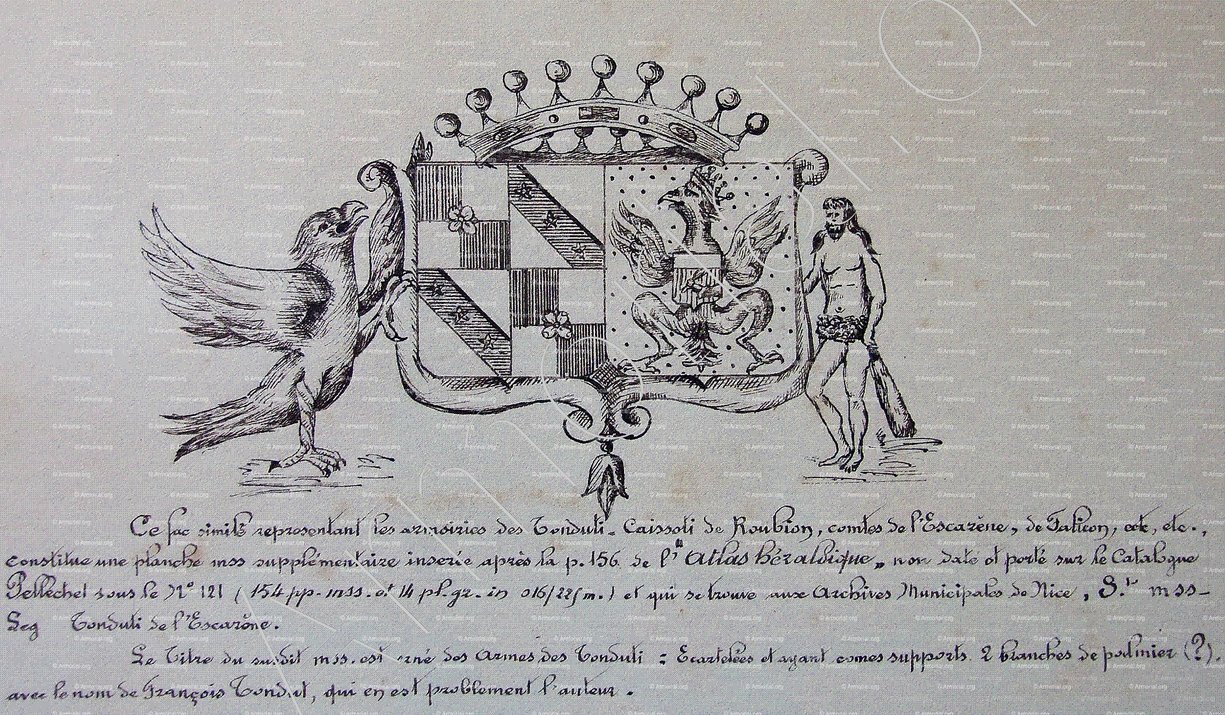 Ce fac similé representant les armoiries des Tonduti - Caissoti de Roubion, comtes de l'Escarène, de Falicon, etc, etc.,
constitue une planche mss supplémentaire inserée après la p. 156 de l'"Atlas héraldique„ non daté et porté sur le Catalogue
Pellechet sous le N° 121 (154 pp. mss. et 14 pl. gr. in 016/22 m.) et qui se trouve aux Archives Municipales de Nice, S.t mss-
Leg Tonduti de l'Escarène.
Le Titre du susdit mss. est orné des Armes des Tonduti : Ecartelées et ayant comes supports 2 branches de palmier (?).
avec le nom de François Tondut, qui en est problement l'auteur.